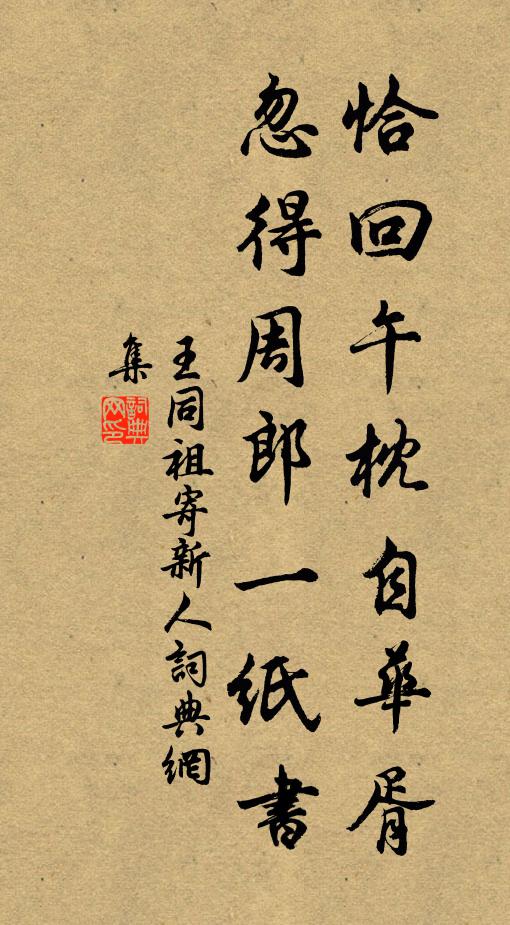 恰回午枕自華胥
忽得周郎一紙書
王同祖寄新人詞典網
集
詞典網印